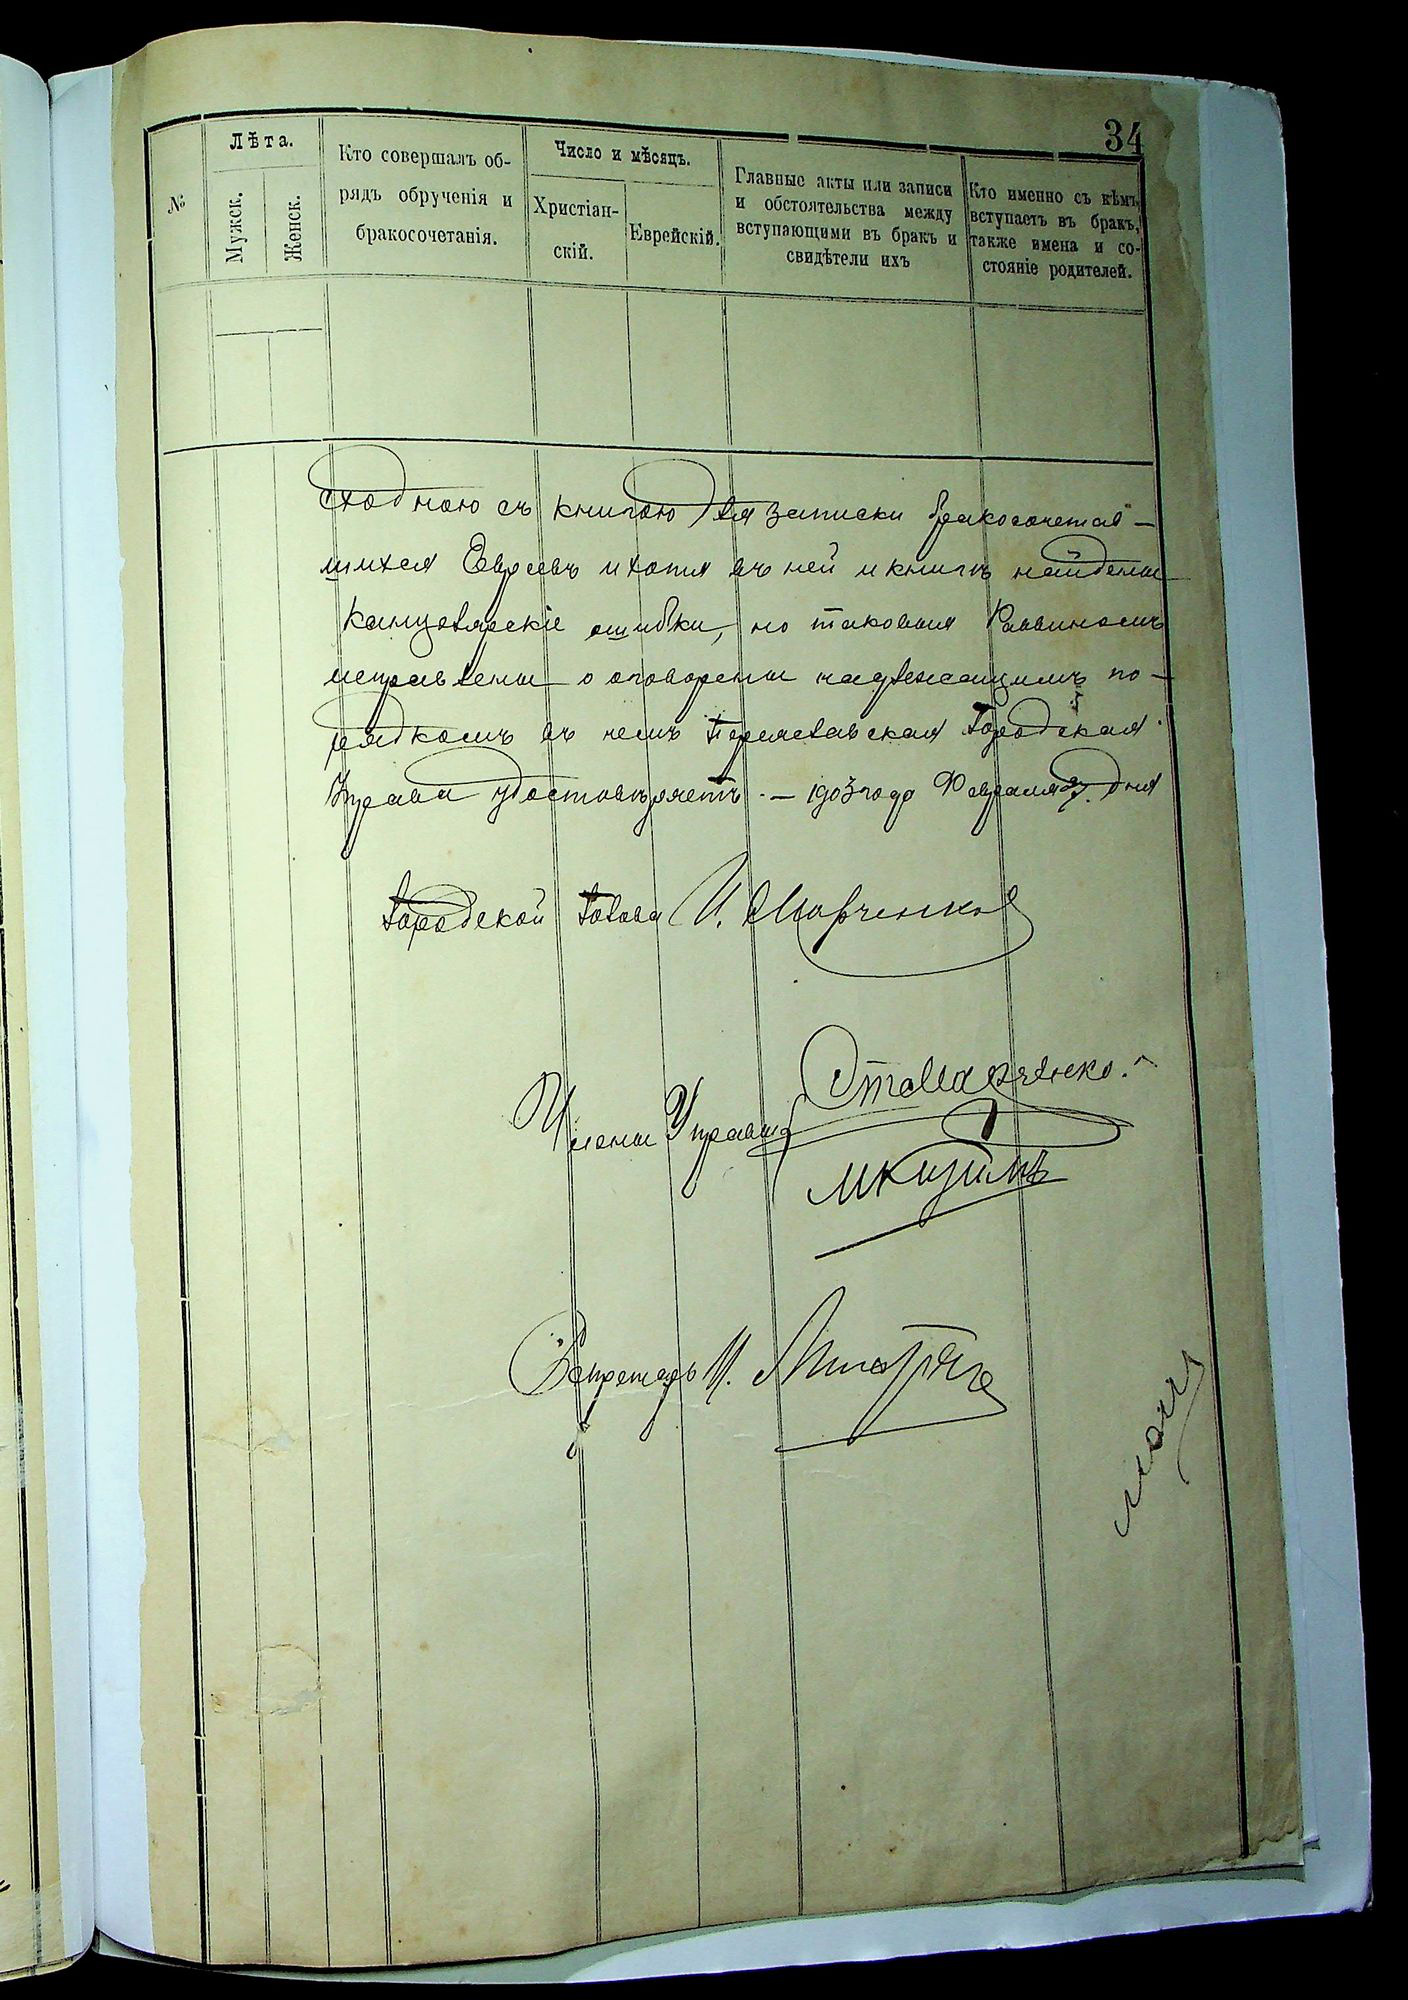 34
№
Лѣта.
Мужск.
Женск.
Кто совершалъ об-
рядъ обрученія и
бракосочетанія.
Число и мѣсяцъ.
Христіан-
скій.
Еврейскій.
Главные акты или записи
и обстоятельства между
вступающими въ бракъ и
свидѣтели ихъ
Кто именно съ кѣмъ
вступаетъ въ бракъ,
также имена и со-
стояніе родителей.
сходною съ книгою для записки бракосочетав-
шихся Евреевъ и хотя въ ней и книгѣ найдены
канцелярскіе ошибки, но таковыя Раввиномъ
исправлены о оговорены надлежащимъ по-
рядкомъ въ чемъ Переяславская Городская
Управа удостовѣряетъ. — 1903 года Февраля 27. дня
Городской Голова И.
Члены Управы
Секретарь И.